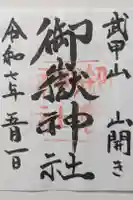 武甲山 山開き
御嶽神社
令和七年五月一日